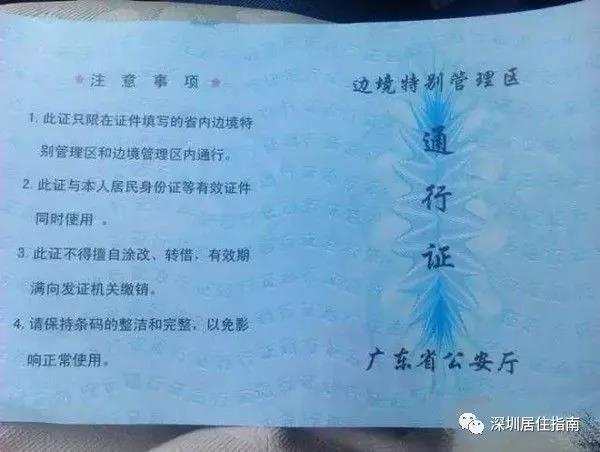 ★ 注意事项 ★
1. 此证只限在证件填写的省内边境特
别管理区和边境管理区内通行。
2. 此证与本人居民身份证等有效证件
同时使用 。
3. 此证不得擅自涂改、转借，有效期
满向发证机关缴销。
4. 请保持条码的整洁和完整，以免影
响正常使用。
边境特别管理区
通
行
证
广东省公安厅
深圳居住指南